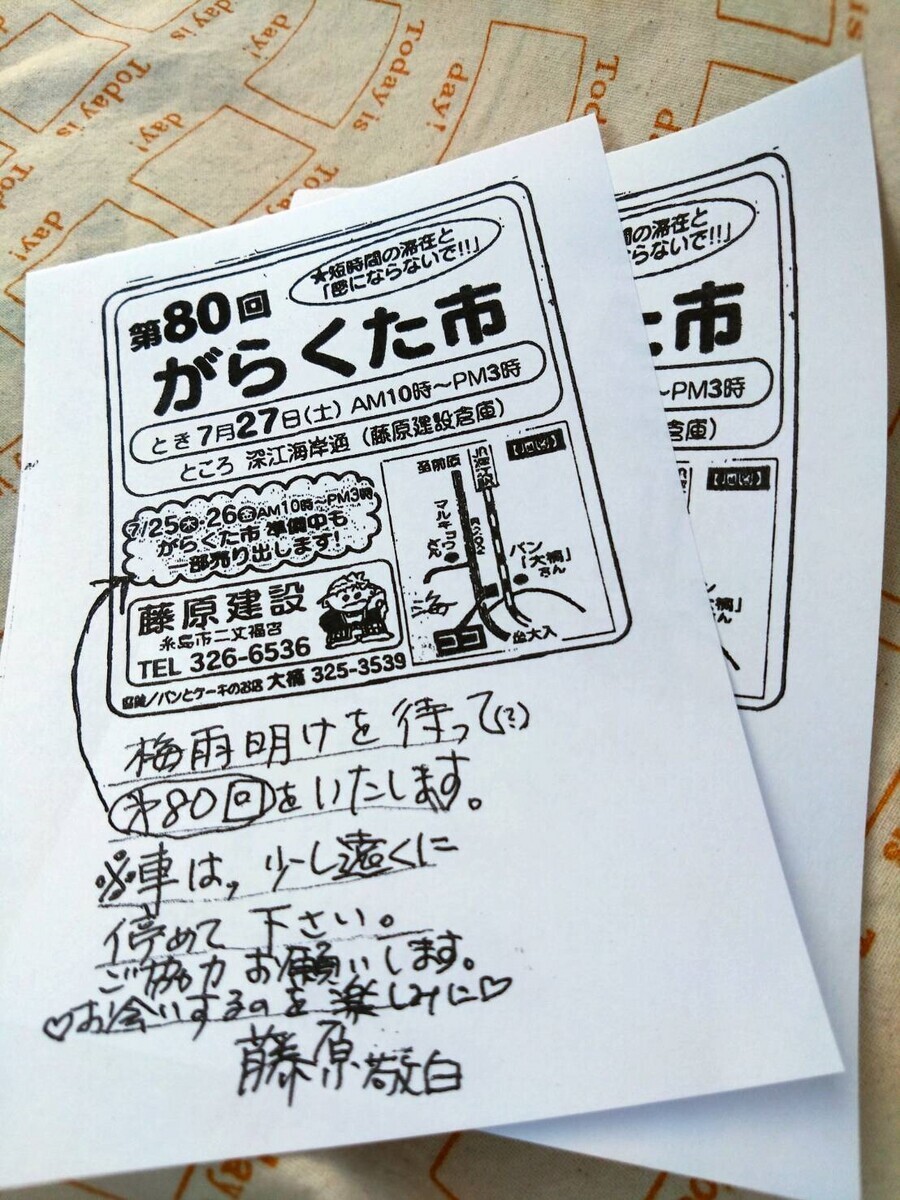 ★短時間の滞在と
「密にならないで!!」
第80回
がらくた市
とき 7月27日(土) AM10時〜PM3時
ところ 深江海岸通（藤原建設倉庫）
7/25㊍・26㊎AM10時〜PM3時
がらくた市 準備中も
一部売り出します!
至前原
JR深江駅
マルキョウさん
R202
パン「大橋」さん
海
ココ
至大入
藤原建設
糸島市二丈福吉
TEL 326-6536
協賛/パンとケーキのお店 大橋 325-3539
梅雨明けを待って(?)
㐧80回をいたします。
※車は、少し遠くに
停めて下さい。
ご協力お願いします。
♡お会いするのを楽しみに♡
藤原敬白
間の滞在と
らないで!!」
た市
〜PM3時
倉庫）
大橋」
さん
Today is
day!